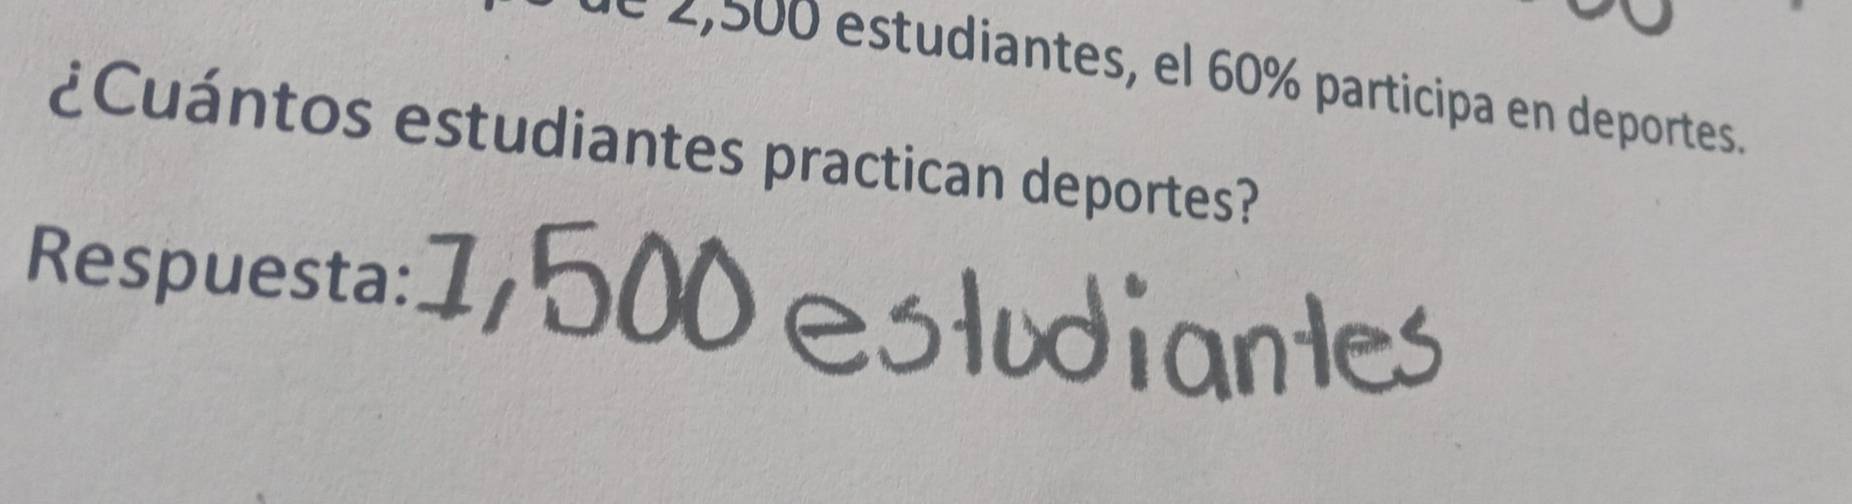 de 2,500 estudiantes, el 60% participa en deportes.
¿Cuántos estudiantes practican deportes?
Respuesta: 1,500 estudiantes